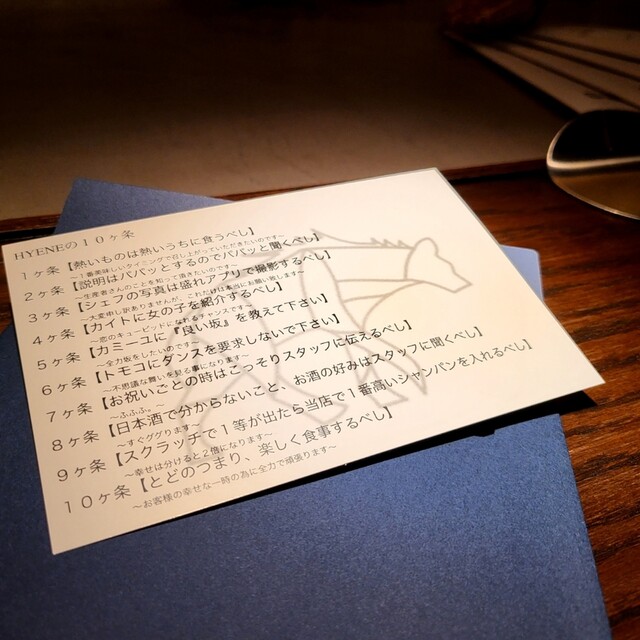 HYENEの１０ヶ条
１ヶ条【熱いものは熱いうちに食うべし】
～１番美味しいタイミングで召し上がっていただきたいのです～
２ヶ条【説明はパパッとするのでパパッと聞くべし】
～生産者さんのことを知って頂きたいのです～
３ヶ条【シェフの写真は盛れアプリで撮影するべし】
～大変申し訳ありませんが、これだけは本当にお願い致します～
４ヶ条【カイトに女の子を紹介するべし】
～恋のキューピッドになれるチャンスです～
５ヶ条【カミーユに『良い坂』を教えて下さい】
～全力坂をしたいのです～
６ヶ条【トモコにダンスを要求しないで下さい】
～不思議な舞いを見る事になります～
７ヶ条【お祝いごとの時はこっそりスタッフに伝えるべし】
～ふふふ。～
８ヶ条【日本酒で分からないこと、お酒の好みはスタッフに聞くべし】
～すぐググります～
９ヶ条【スクラッチで１等が出たら当店で１番高いシャンパンを入れるべし】
～幸せは分けると２倍になります～
１０ヶ条【とどのつまり、楽しく食事するべし】
～お客様の幸せな一時の為に全力で頑張ります～